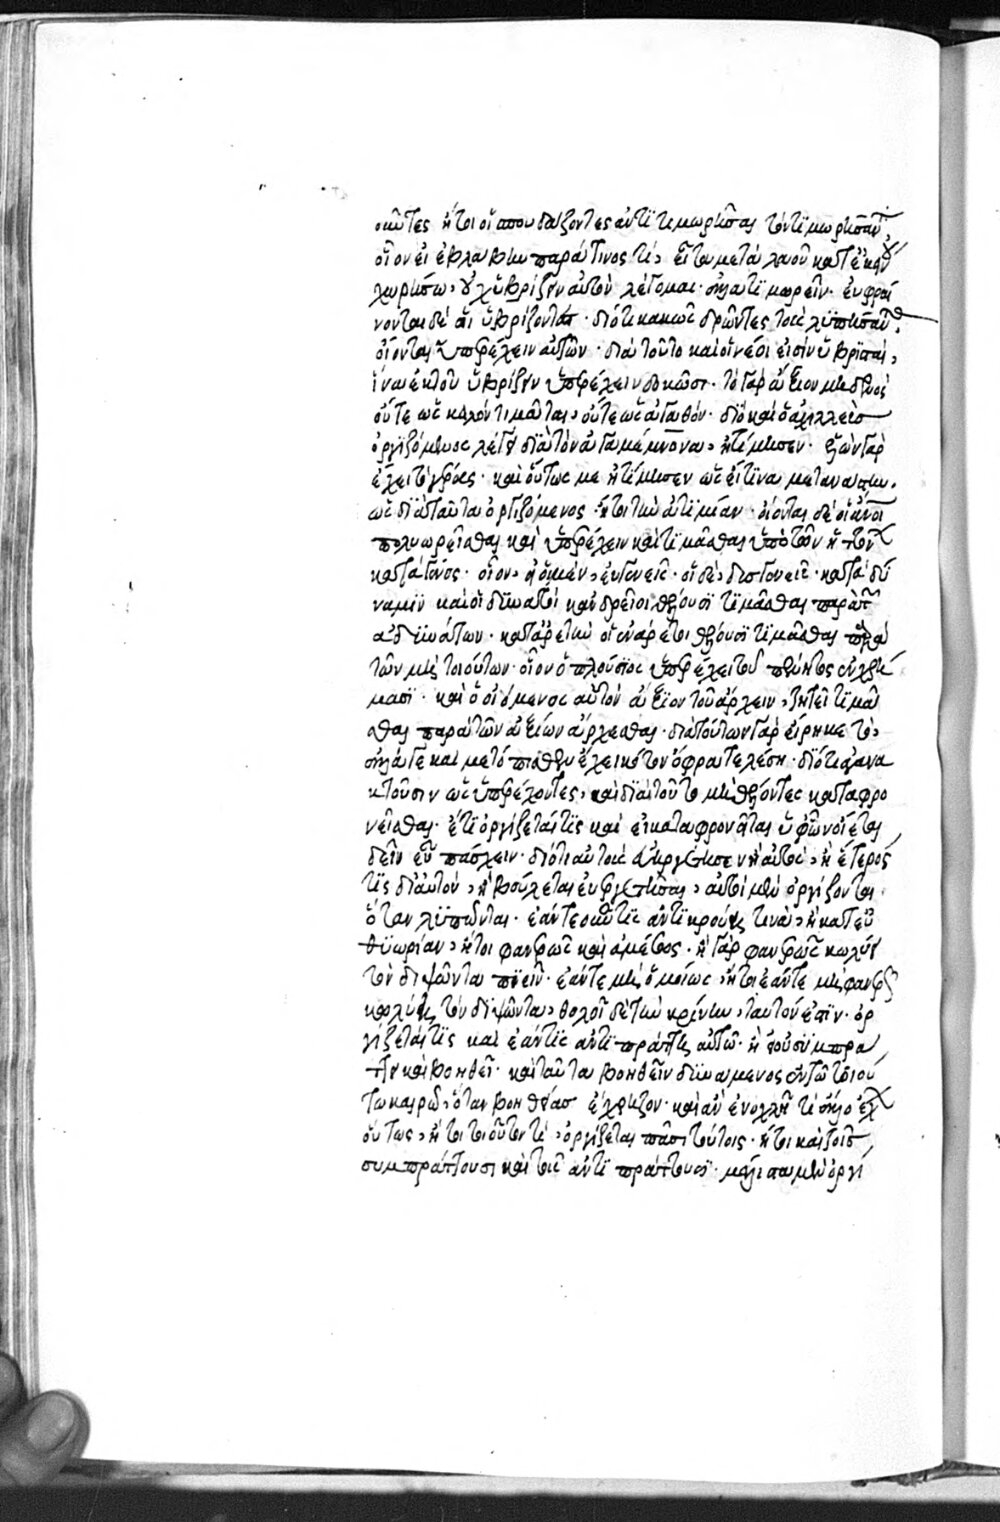 σκῶντες ἤτοι οἱ σπουδάζοντες ἀντιτιμωρῆσαι τὸν τιμωρήσαντ
οἷον εἰ ἐβλάβην παρά τινος τί, εἶτα μετὰ λαοῦ κατ' ἐκείνου
χωρήσω, οὐχ ὑβρίζειν αὐτὸν λέγομαι· ἀλλὰ τιμωρεῖν· εὐφραί
νονται δὲ οἱ ὑβρίζοντες· διότι κακῶς δρῶντες τοὺς λυπήσαντ
οἴονται ὑπερέχειν αὐτῶν· διὰ τοῦτο καὶ οἱ νέοι εἰσὶν ὑβρισταὶ,
ἵνα ἐκ τοῦ ὑβρίζειν ὑπερέχειν δοκῶσι· τὸ γὰρ ἄξιον μηδενὸς
οὔτε ὡς καλὸν τιμᾶται, οὔτε ὡς ἀγαθόν· διὸ καὶ ὁ ἀχιλλεὺς
ὀργιζόμενος λέγει διὰ τὸν ἀγαμέμνονα, ἠτίμησεν· ἑλὼν γὰρ
ἔχει τὸ γέρας· καὶ οὕτως με ἠτίμησεν ὡς εἴ τινα μετανάστην·
ὡς διὰ ταῦτα ὀργιζόμενος ἤτοι τὴν ἀτιμίαν· οἴονται δὲ οἱ ἄνοι
πολυωρεῖσθαι καὶ ὑπερέχειν καὶ τιμᾶσθαι ὑπὸ τῶν ἡττόν
κατὰ γένος· οἷον, οἱ μὲν, εὐγενεῖς· οἱ δὲ, δυσγενεῖς· κατὰ δύ
ναμιν καὶ οἱ δυνατοὶ καὶ ἀνδρεῖοι θέλουσι τιμᾶσθαι παρὰ τῶν
ἀδυνάτων· κατὰ ἀρετὴν οἱ ἐνάρετοι θέλουσι τιμᾶσθαι παρὰ
τῶν μὴ τοιούτων· οἷον ὁ πλούσιος ὑπερέχει τοῦ πένητος ἐν χρή
μασι· καὶ ὁ οἰόμενος αὑτὸν ἄξιον τοῦ ἄρχειν, ζητεῖ τιμᾶ
σθαι παρὰ τῶν ἀξίων ἄρχεσθαι· διὰ τούτων γὰρ εἴρηκε τὸ,
ἀλλά γε καὶ μετόπισθεν ἔχει κότον ὄφρα τελέσῃ· διότι ἀγανα
κτοῦσιν ὡς ὑπερέχοντες, καὶ διὰ τοῦτο μὴ θέλοντες καταφρο
νεῖσθαι· ἔτι ὀργίζεταί τις καὶ εἰ καταφρονεῖται ὑφ' ὧν οἴεται
δεῖν εὖ πάσχειν· διότι αὐτοὺς εὐηργέτησεν ἢ αὐτὸς, ἢ ἕτερός
τις δι' αὐτὸν, ἢ βούλεται εὐεργετῆσαι, αὐτοὶ μὲν ὀργίζονται
ὅταν λυπῶνται· ἐάν τε οὖν τις ἀντικρούῃ τινὰ, ἢ κατ' εὐ
θυωρίαν, ἤτοι φανερῶς καὶ ἀμέσως· ἢ γὰρ φανερῶς κωλύει
τὸν διψῶντα πιεῖν· ἐάν τε μὴ ὁμοίως, ἤτοι ἐάν τε μὴ φανερῶς
κωλύῃ τὸν διψῶντα, θολοῖ δὲ τὴν κρήνην, ταυτόν ἐστιν· ὀρ
γίζεταί τις καὶ ἐάν τις ἀντιπράττῃ αὐτῷ· ἢ οὐ συμπρά
τει καὶ βοηθεῖ· καὶ ταῦτα βοηθεῖν δυνάμενος ἐν τῷ τοιού
τω καιρῷ, ὅταν βοηθείας ἔχρηζον· καὶ ἂν ἐνοχλῇ τι ἄλλο ἔχοντ
οὕτως, ἤτοι τοιοῦτόν τι, ὀργίζεται πᾶσι τούτοις· ἤτοι καὶ τοῖς
συμπράττουσι καὶ τοῖς ἀντιπράττουσι· μάλιστα μὲν ὀργί